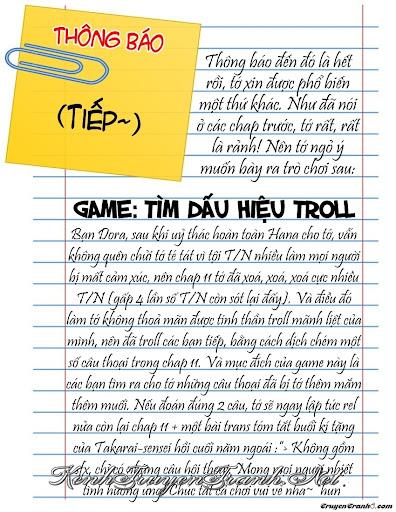 THÔNG BÁO
(TIẾP~)
Thông báo đến đó là hết
rồi, tớ xin được phổ biến
một thứ khác. Như đã nói
ở các chap trước, tớ rất, rất
là rảnh! Nên tớ ngỏ ý
muốn bày ra trò chơi sau:
GAME: TÌM DẤU HIỆU TROLL
Bạn Dora, sau khi uỷ thác hoàn toàn Hana cho tớ, vẫn
không quên chửi tớ té tát vì tội T/N nhiều làm mọi người
bị mất cảm xúc, nên chap 11 tớ đã xoá, xoá, xoá cực nhiều
T/N (gấp 4 lần số T/N còn sót lại đấy). Và điều đó
làm tớ không thoả mãn được tinh thần troll mãnh liệt của
mình, nên đã troll các bạn tiếp, bằng cách dịch chém một
số câu thoại trong chap 11. Và mục đích của game này là
các bạn tìm ra cho tớ những câu thoại đã bị tớ thêm mắm
thêm muối. Nếu đoán đúng 2 câu, tớ sẽ ngay lập tức rel
nửa còn lại chap 11 + một bài trans tóm tắt buổi kí tặng
của Takarai-sensei hồi cuối năm ngoái :"> Không gồm
sfx, chỉ có đường câu hội thoại. Mong mọi người nhiệt
tình hưởng ứng! Chúc tất cả chơi vui vẻ nha~ hun
KenhTruyenTranh.Net
TruyenTranh8.com